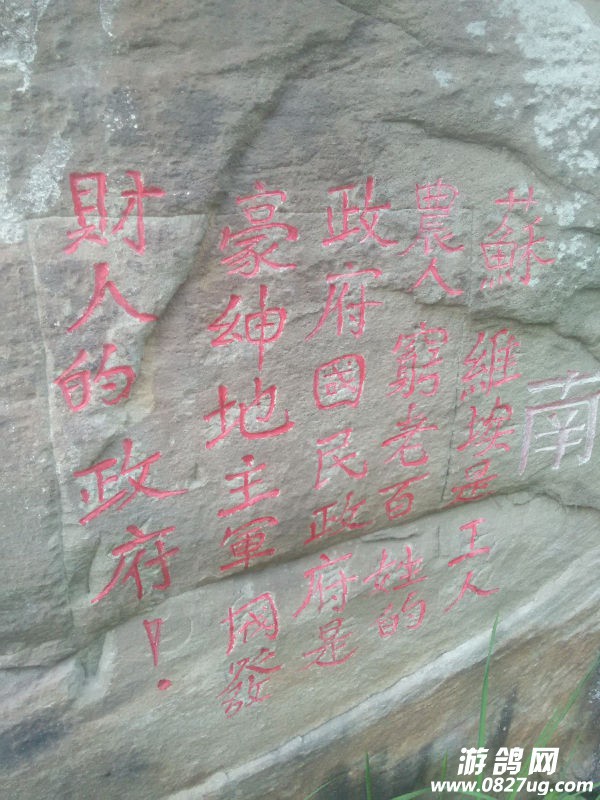 南
蘇維埃是工人
農人窮老百姓的
政府國民政府是
豪紳地主軍閥發
財人的政府！
游鸽网
www.0827ug.com